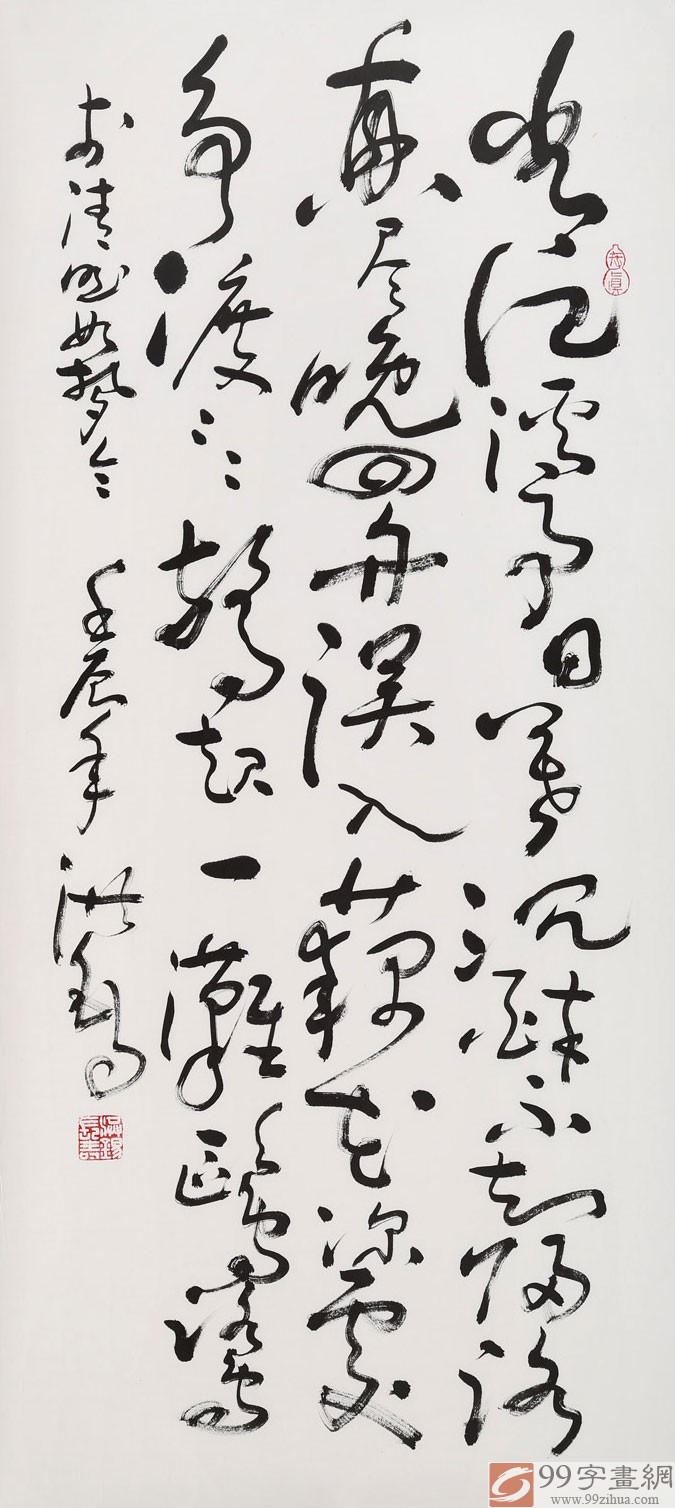 常记溪亭日暮沉醉不知归路
兴尽晚回舟误入藕花深處
争渡争渡驚起一灘鷗鷺
李清照如夢令 壬辰年
99字畫網
www.99zihua.com